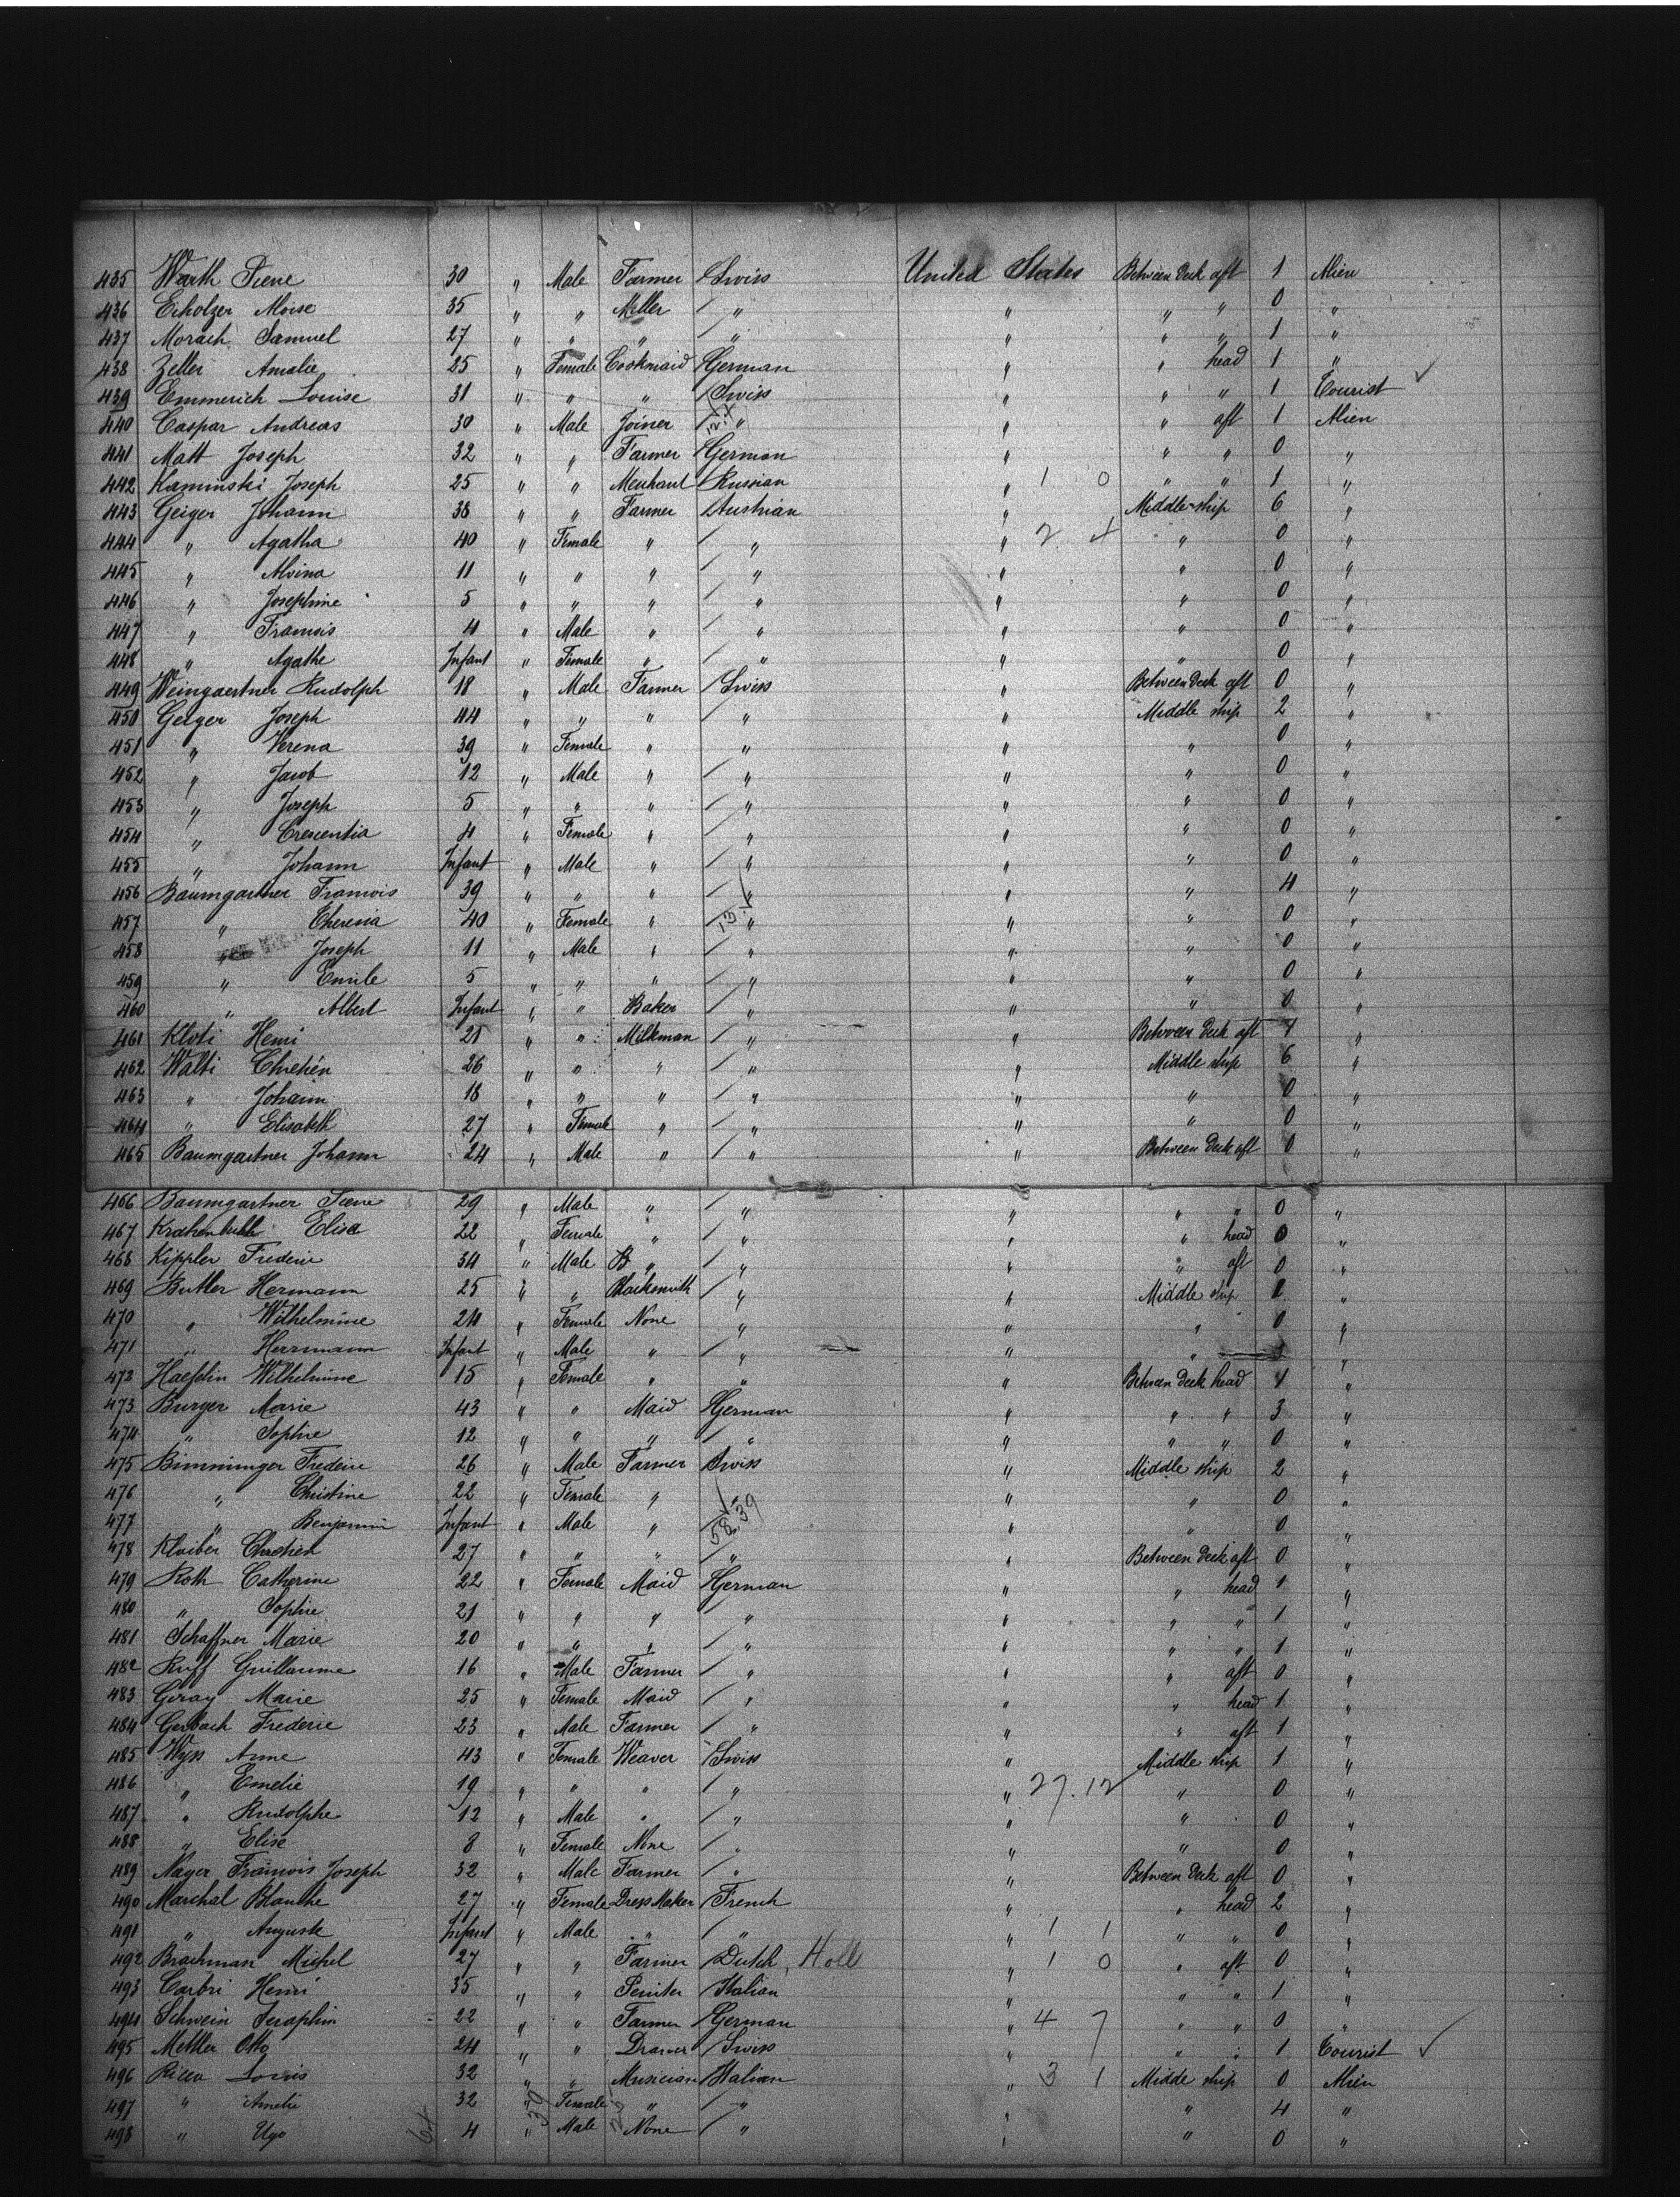 435 Warth Piere 30 " Male Farmer / Swiss United States Between deck aft 1 Alien
436 Eicholzer Moise 35 " " Miller / " " " " 0 "
437 Morach Samuel 27 " " " / " " " " 1 "
438 Zeller Amalie 25 " Female Cookmaid / German " " head 1 "
439 Emmerich Louise 31 " " " / Swiss " " " 1 Tourist ✓
440 Caspar Andreas 30 " Male Joiner / " " " aft 1 Alien
441 Matt Joseph 32 " " Farmer / German " " " 0 "
442 Kaminski Joseph 25 " " Merchant / Russian " 1 0 " " 1 "
443 Geiger Johann 38 " " Farmer / Austrian " Middle-ship 6 "
444 " Agatha 40 " Female " / " " 2. 4 " 0 "
445 " Alvina 11 " " " / " " " 0 "
446 " Josephine 5 " " " / " " " 0 "
447 " Framois 4 " Male " / " " " 0 "
448 " Agathe Infant " Female " / " " " 0 "
449 Weingaertner Rudolph 18 " Male Farmer / Swiss " Between deck aft 0 "
450 Geiger Joseph 44 " " " / " " Middle ship 2 "
451 " Verena 39 " Female " / " " " 0 "
452 " Jacob 12 " Male " / " " " 0 "
453 " Joseph 5 " " " / " " " 0 "
454 " Crescentia 4 " Female " / " " " 0 "
455 " Johann Infant " Male " / " " " 0 "
456 Baumgartner Framois 39 " " " / " " " 4 "
457 " Theresia 40 " Female " / " " " 0 "
458 " Joseph 11 " Male " / " " " 0 "
459 " Emile 5 " " " / " " " 0 "
460 " Albert Infant " " Baker / " " " 0 "
461 Kloti Henri 21 " " Milkman / " " Between deck aft 1 "
462 Walti Chretien 26 " " " / " " Middle ship 6 "
463 " Johann 18 " " " / " " " 0 "
464 " Elisabeth 27 " Female " / " " " 0 "
465 Baumgartner Johann 24 " Male " / " " Between deck aft 0 "
466 Baumgartner Piere 29 " Male " / " " " " 0 "
467 Krahenbuhl Elisa 22 " Female " / " " " head 0 "
468 Kippler Frederic 34 " Male B " / " " " aft 0 "
469 Butler Hermann 25 " " Blacksmith / " " Middle ship 2 "
470 " Wilhelmine 24 " Female None / " " " 0 "
471 " Herrmann Infant " Male " / " " " "
472 Haefelin Wilhelmine 15 " Female " / " " Between deck head 1 "
473 Burger Marie 43 " " Maid / German " " " 3 "
474 " Sophie 12 " " " / " " " " 0 "
475 Binninger Frederic 26 " Male Farmer / Swiss " Middle ship 2 "
476 " Christine 22 " Female " / " " " 0 "
477 " Benjamin Infant " Male " / " " 0 "
478 Klaiber Chretien 27 " " " / " " Between deck aft 0 "
479 Roth Catherine 22 " Female Maid / German " " head 1 "
480 " Sophie 21 " " " / " " " " 1 "
481 Schaffner Marie 20 " " " / " " " " 1 "
482 Ruff Guillaume 16 " Male Farmer / " " " aft 0 "
483 Geray Marie 25 " Female Maid / " " " head 1 "
484 Gerbach Frederic 23 " Male Farmer / " " " aft 1 "
485 Wyss Anne 43 " Female Weaver / Swiss " Middle ship 1 "
486 " Emelie 19 " " " / " " 27.12 " 0 "
487 " Rudolphe 12 " Male " / " " " 0 "
488 " Elise 8 " Female None / " " " 0 "
489 Nager Framois Joseph 32 " Male Farmer / " " Between deck aft 0 "
490 Marchal Blanche 27 " Female Dress Maker / French " " head 2 "
491 " Auguste Infant " Male " / " " 1 1 " " 0 "
492 Brachman Michel 27 " " Farmer / Dutch, Holl " 1 0 " aft 0 "
493 Carbri Henri 35 " " / Italian " " " 1 "
494 Schwein Seraphin 22 " " Farmer / German " 4 7 " " 0 "
495 Mettler Otto 24 " " / Swiss " " " 1 Tourist ✓
496 Ricca Louis 32 " " Musician / Italian " 3 1 Midde ship 0 Alien
497 " Amelie 32 " Female " / " " " 4 "
498 " Ugo 4 " Male None / " " " 0 "